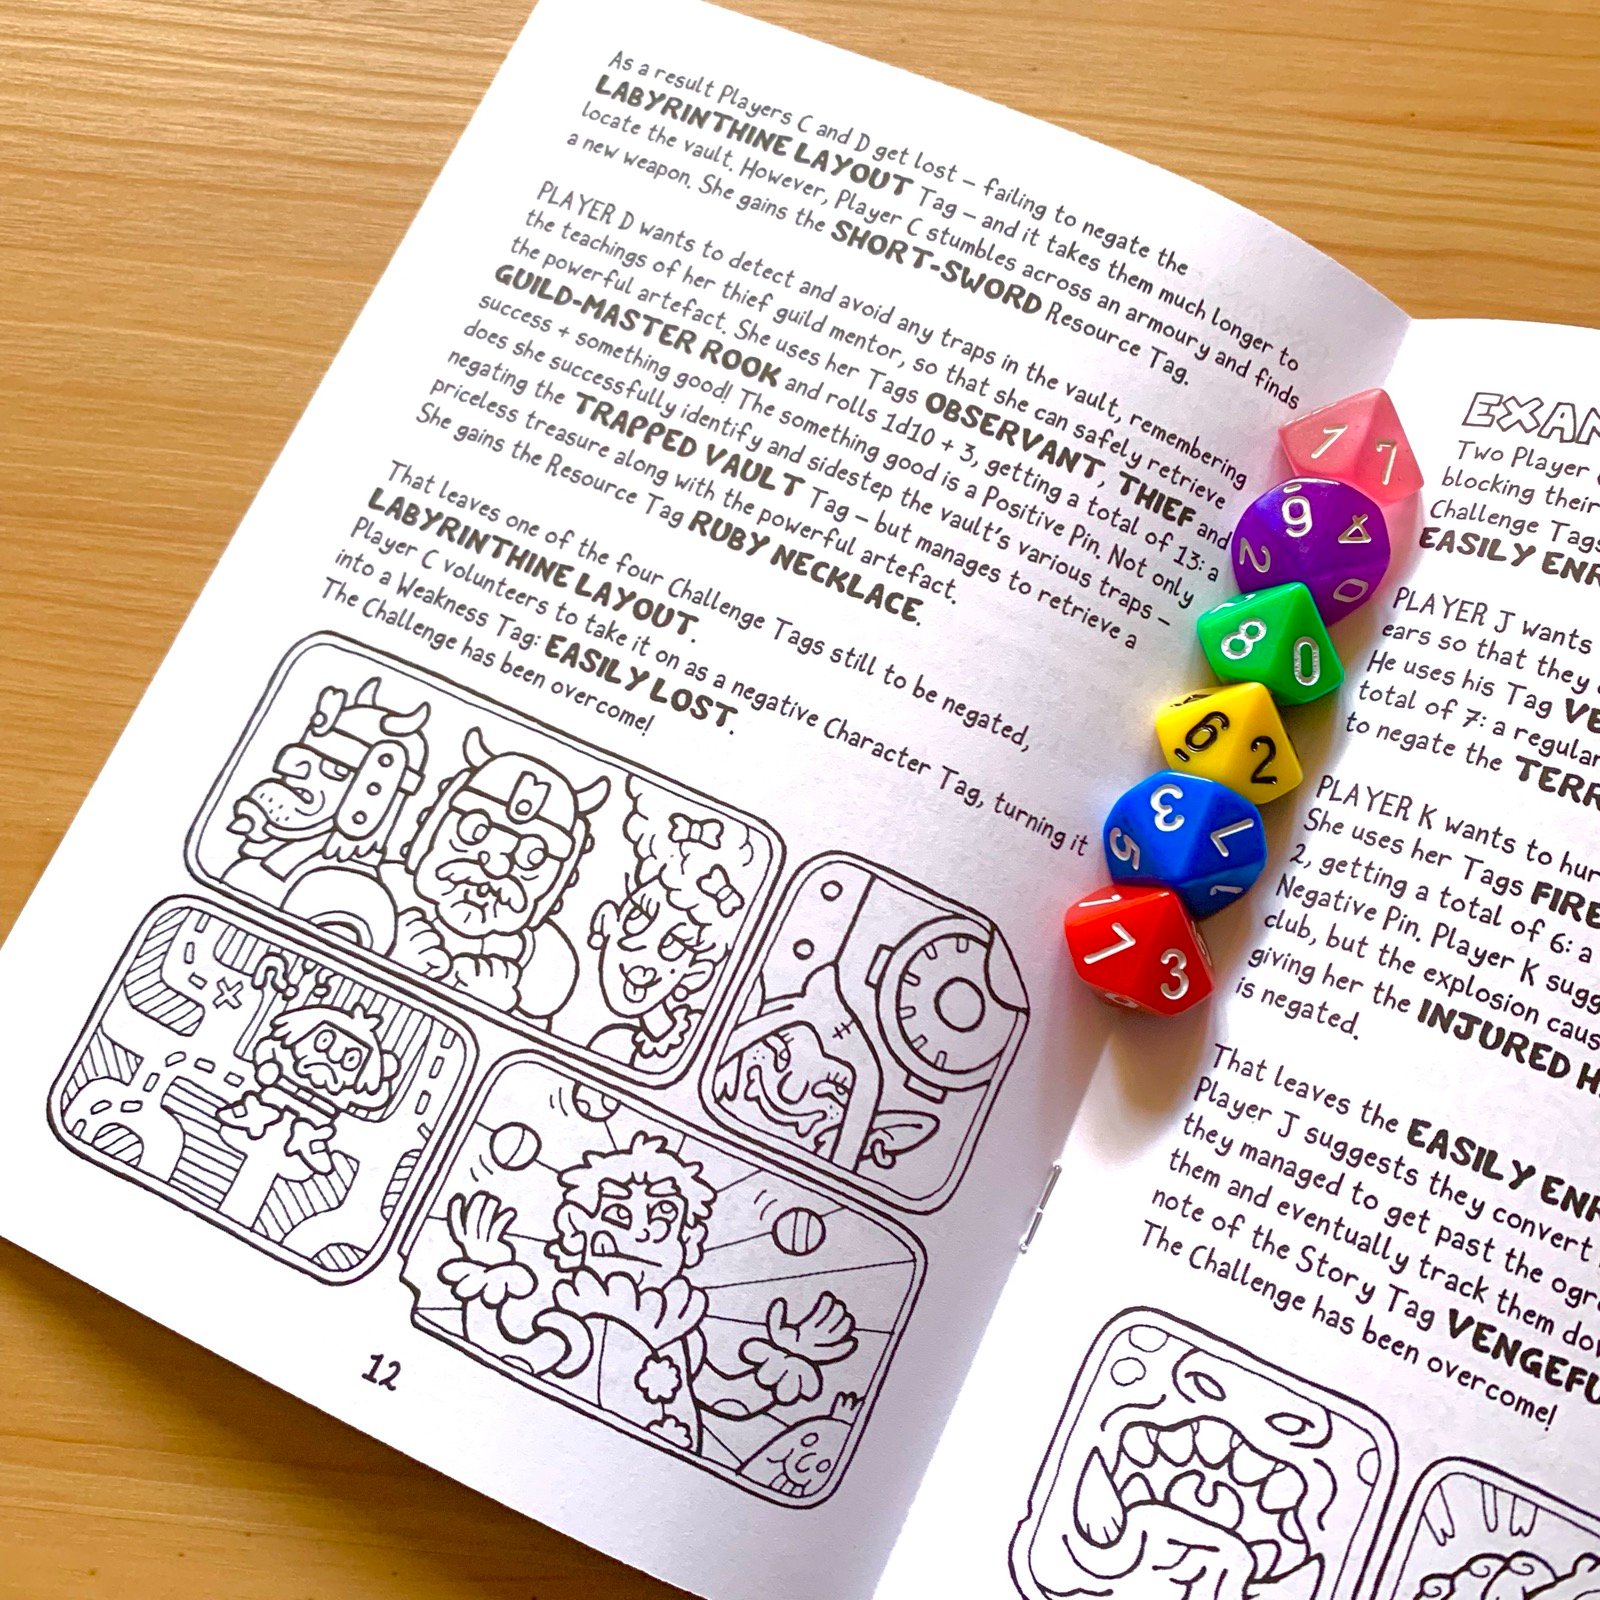 As a result Players C and D get lost – failing to negate the
LABYRINTHINE LAYOUT Tag – and it takes them much longer to
locate the vault. However, Player C stumbles across an armoury and finds
a new weapon. She gains the SHORT-SWORD Resource Tag.
PLAYER D wants to detect and avoid any traps in the vault, remembering
the teachings of her thief guild mentor, so that she can safely retrieve
the powerful artefact. She uses her Tags OBSERVANT, THIEF and
GUILD-MASTER ROOK and rolls 1d10 + 3, getting a total of 13: a
success + something good! The something good is a Positive Pin. Not only
does she successfully identify and sidestep the vault's various traps –
negating the TRAPPED VAULT Tag – but manages to retrieve a
priceless treasure along with the powerful artefact.
She gains the Resource Tag RUBY NECKLACE.
That leaves one of the four Challenge Tags still to be negated,
LABYRINTHINE LAYOUT.
Player C volunteers to take it on as a negative Character Tag, turning it
into a Weakness Tag: EASILY LOST.
The Challenge has been overcome!
12
Two Player
blocking their
Challenge Tags
EASILY
PLAYER J wants
ears so that they
He uses his Tag
total of 7: a regular
to negate the
PLAYER K wants to
She uses her Tags FIRE
2, getting a total of 6: a
Negative Pin. Player K
club, but the explosion
giving her the INJURED
is negated.
That leaves the EASILY
Player J suggests they convert
they managed to get past the
them and eventually track them
note of the Story Tag
The Challenge has been overcome!
1 7
9 4 2 0
8 0
6 2
3 7 5 1
1 7 3